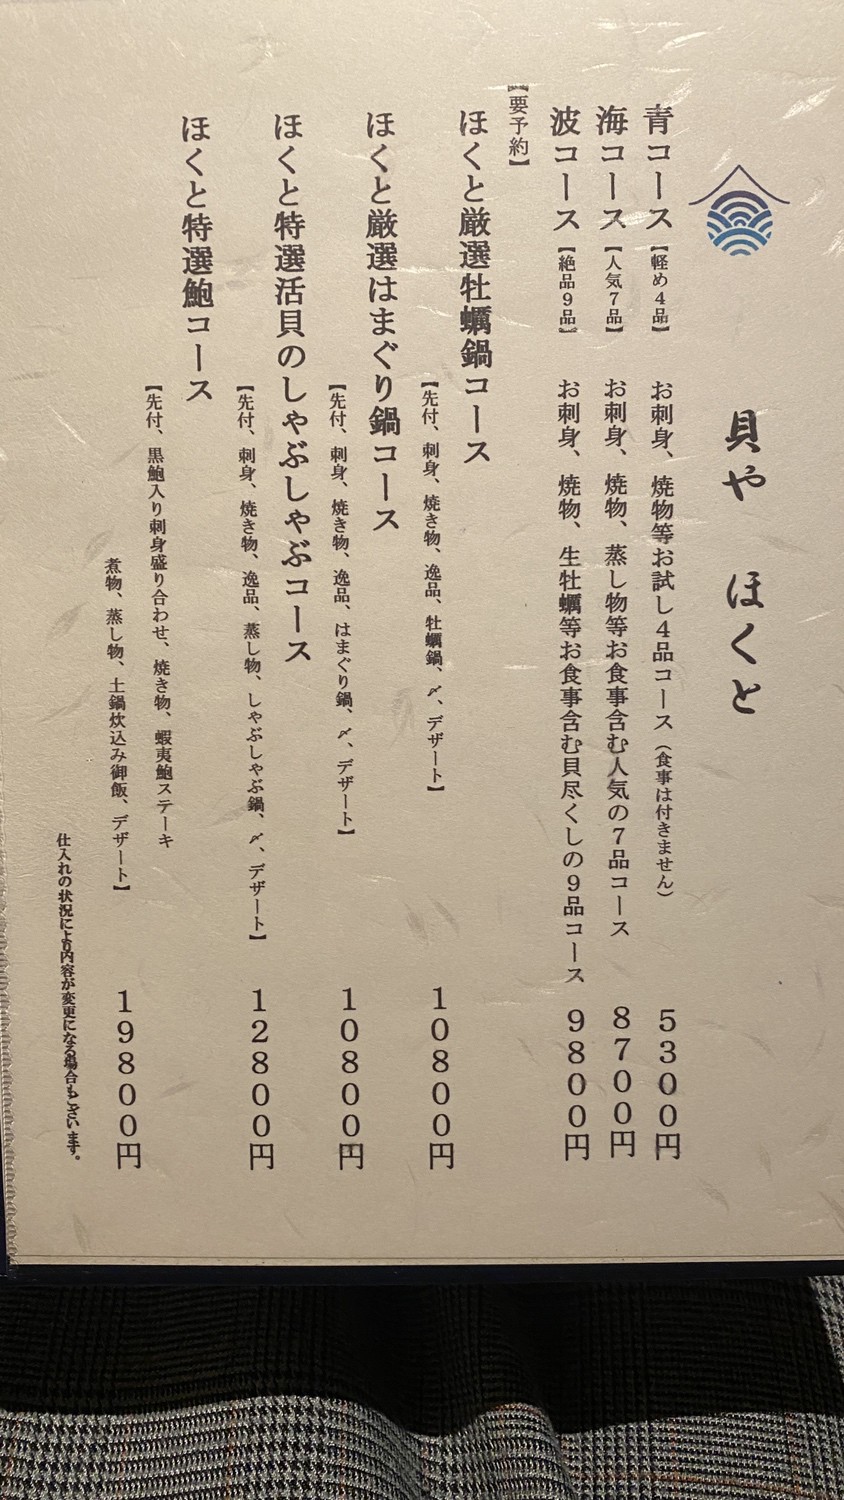 貝や　ほくと
青コース【軽め４品】　お刺身、焼物等お試し４品コース（食事は付きません）　５３００円
海コース【人気７品】　お刺身、焼物、蒸し物等お食事含む人気の７品コース　８７００円
波コース【絶品９品】　お刺身、焼物、生牡蠣等お食事含む貝尽くしの９品コース　９８００円
【要予約】
ほくと厳選牡蠣鍋コース
【先付、刺身、焼き物、逸品、牡蠣鍋、〆、デザート】　１０８００円
ほくと厳選はまぐり鍋コース
【先付、刺身、焼き物、逸品、はまぐり鍋、〆、デザート】　１０８００円
ほくと特選活貝のしゃぶしゃぶコース
【先付、刺身、焼き物、逸品、蒸し物、しゃぶしゃぶ鍋、〆、デザート】　１２８００円
ほくと特選鮑コース
【先付、黒鮑入り刺身盛り合わせ、焼き物、蝦夷鮑ステーキ
煮物、蒸し物、土鍋炊込み御飯、デザート】　１９８００円
仕入れの状況により内容が変更になる場合もございます。